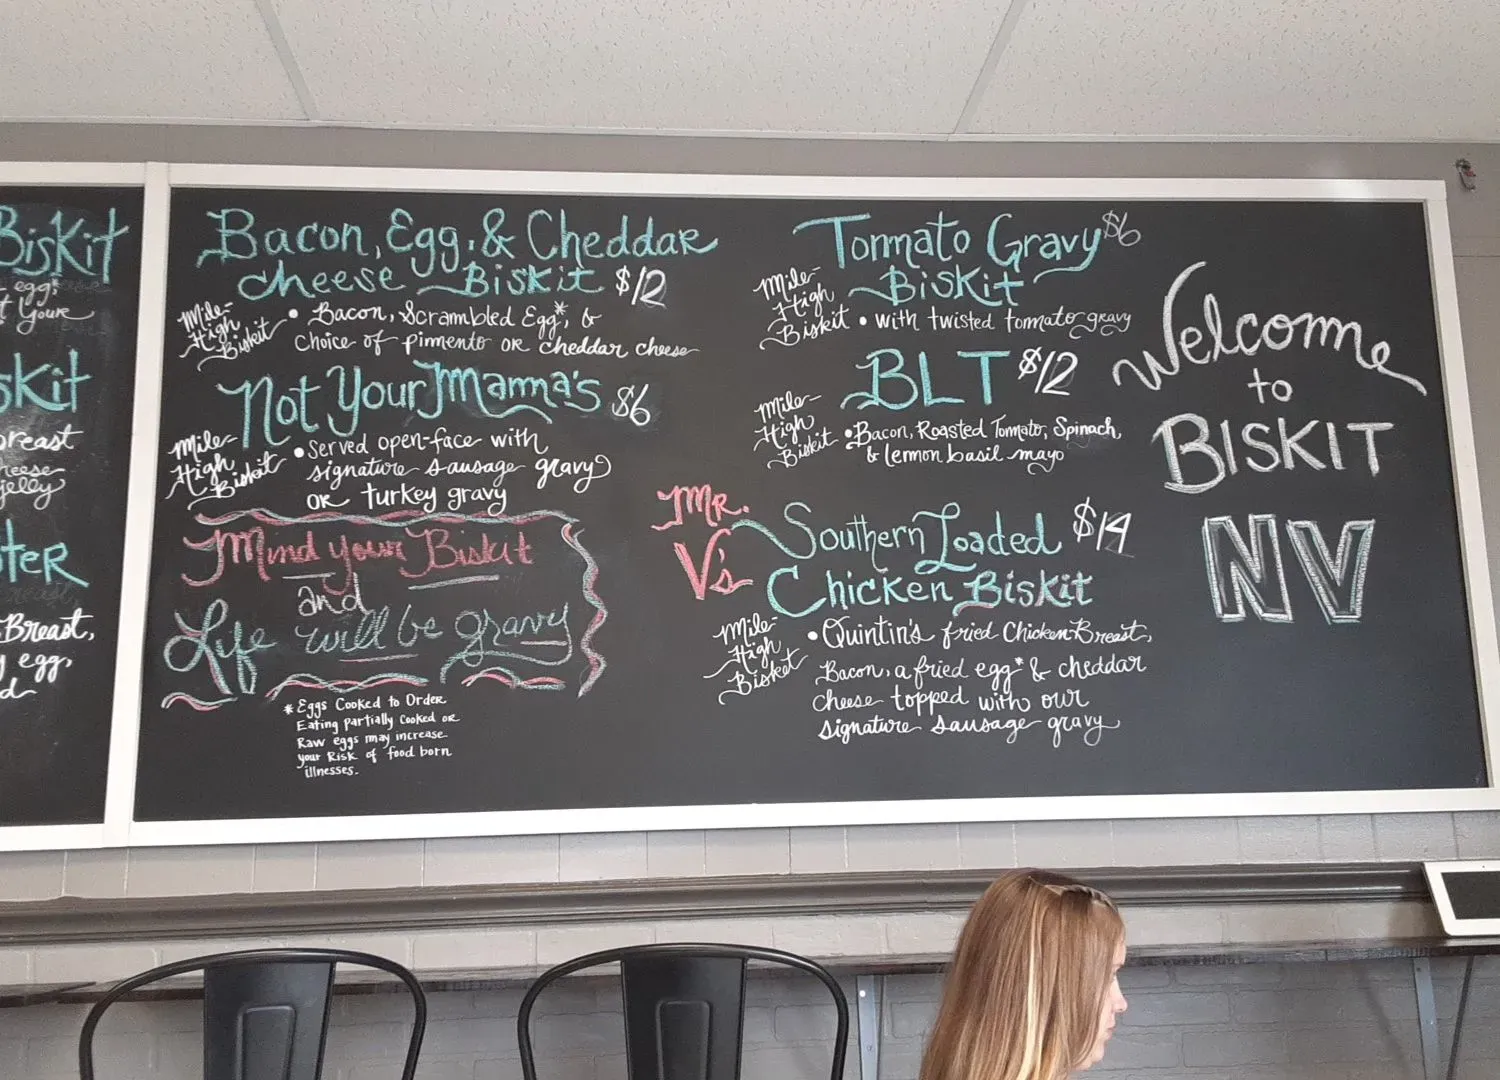 Biskit
egg,
t your
skit
breast
cheese
jelly
ter
Breast,
egg,
Bacon, Egg, & Cheddar
cheese Biskit $12
Mile-
High
Biskit
• Bacon, Scrambled Egg*, &
choice of pimento or cheddar cheese
Not Your Mamma's $6
Mile-
High
Biskit
• Served open-face with
signature sausage gravy
or turkey gravy
Mind your Biskit
and
Life will be gravy
* Eggs Cooked to Order
Eating partially cooked or
Raw eggs may increase
your Risk of food born
illnesses.
Tommato Gravy $6
Biskit
Mile-
High
Biskit
• with twisted tommato gravy
BLT $12
Mile-
High
Biskit
• Bacon, Roasted Tomato, Spinach,
& lemon basil mayo
Mr.
V's
Southern Loaded $14
Chicken Biskit
Mile-
High
Biskit
• Quintin's fried Chicken Breast,
Bacon, a fried egg* & cheddar
cheese topped with our
signature sausage gravy
Welcome
to
BISKIT
NV